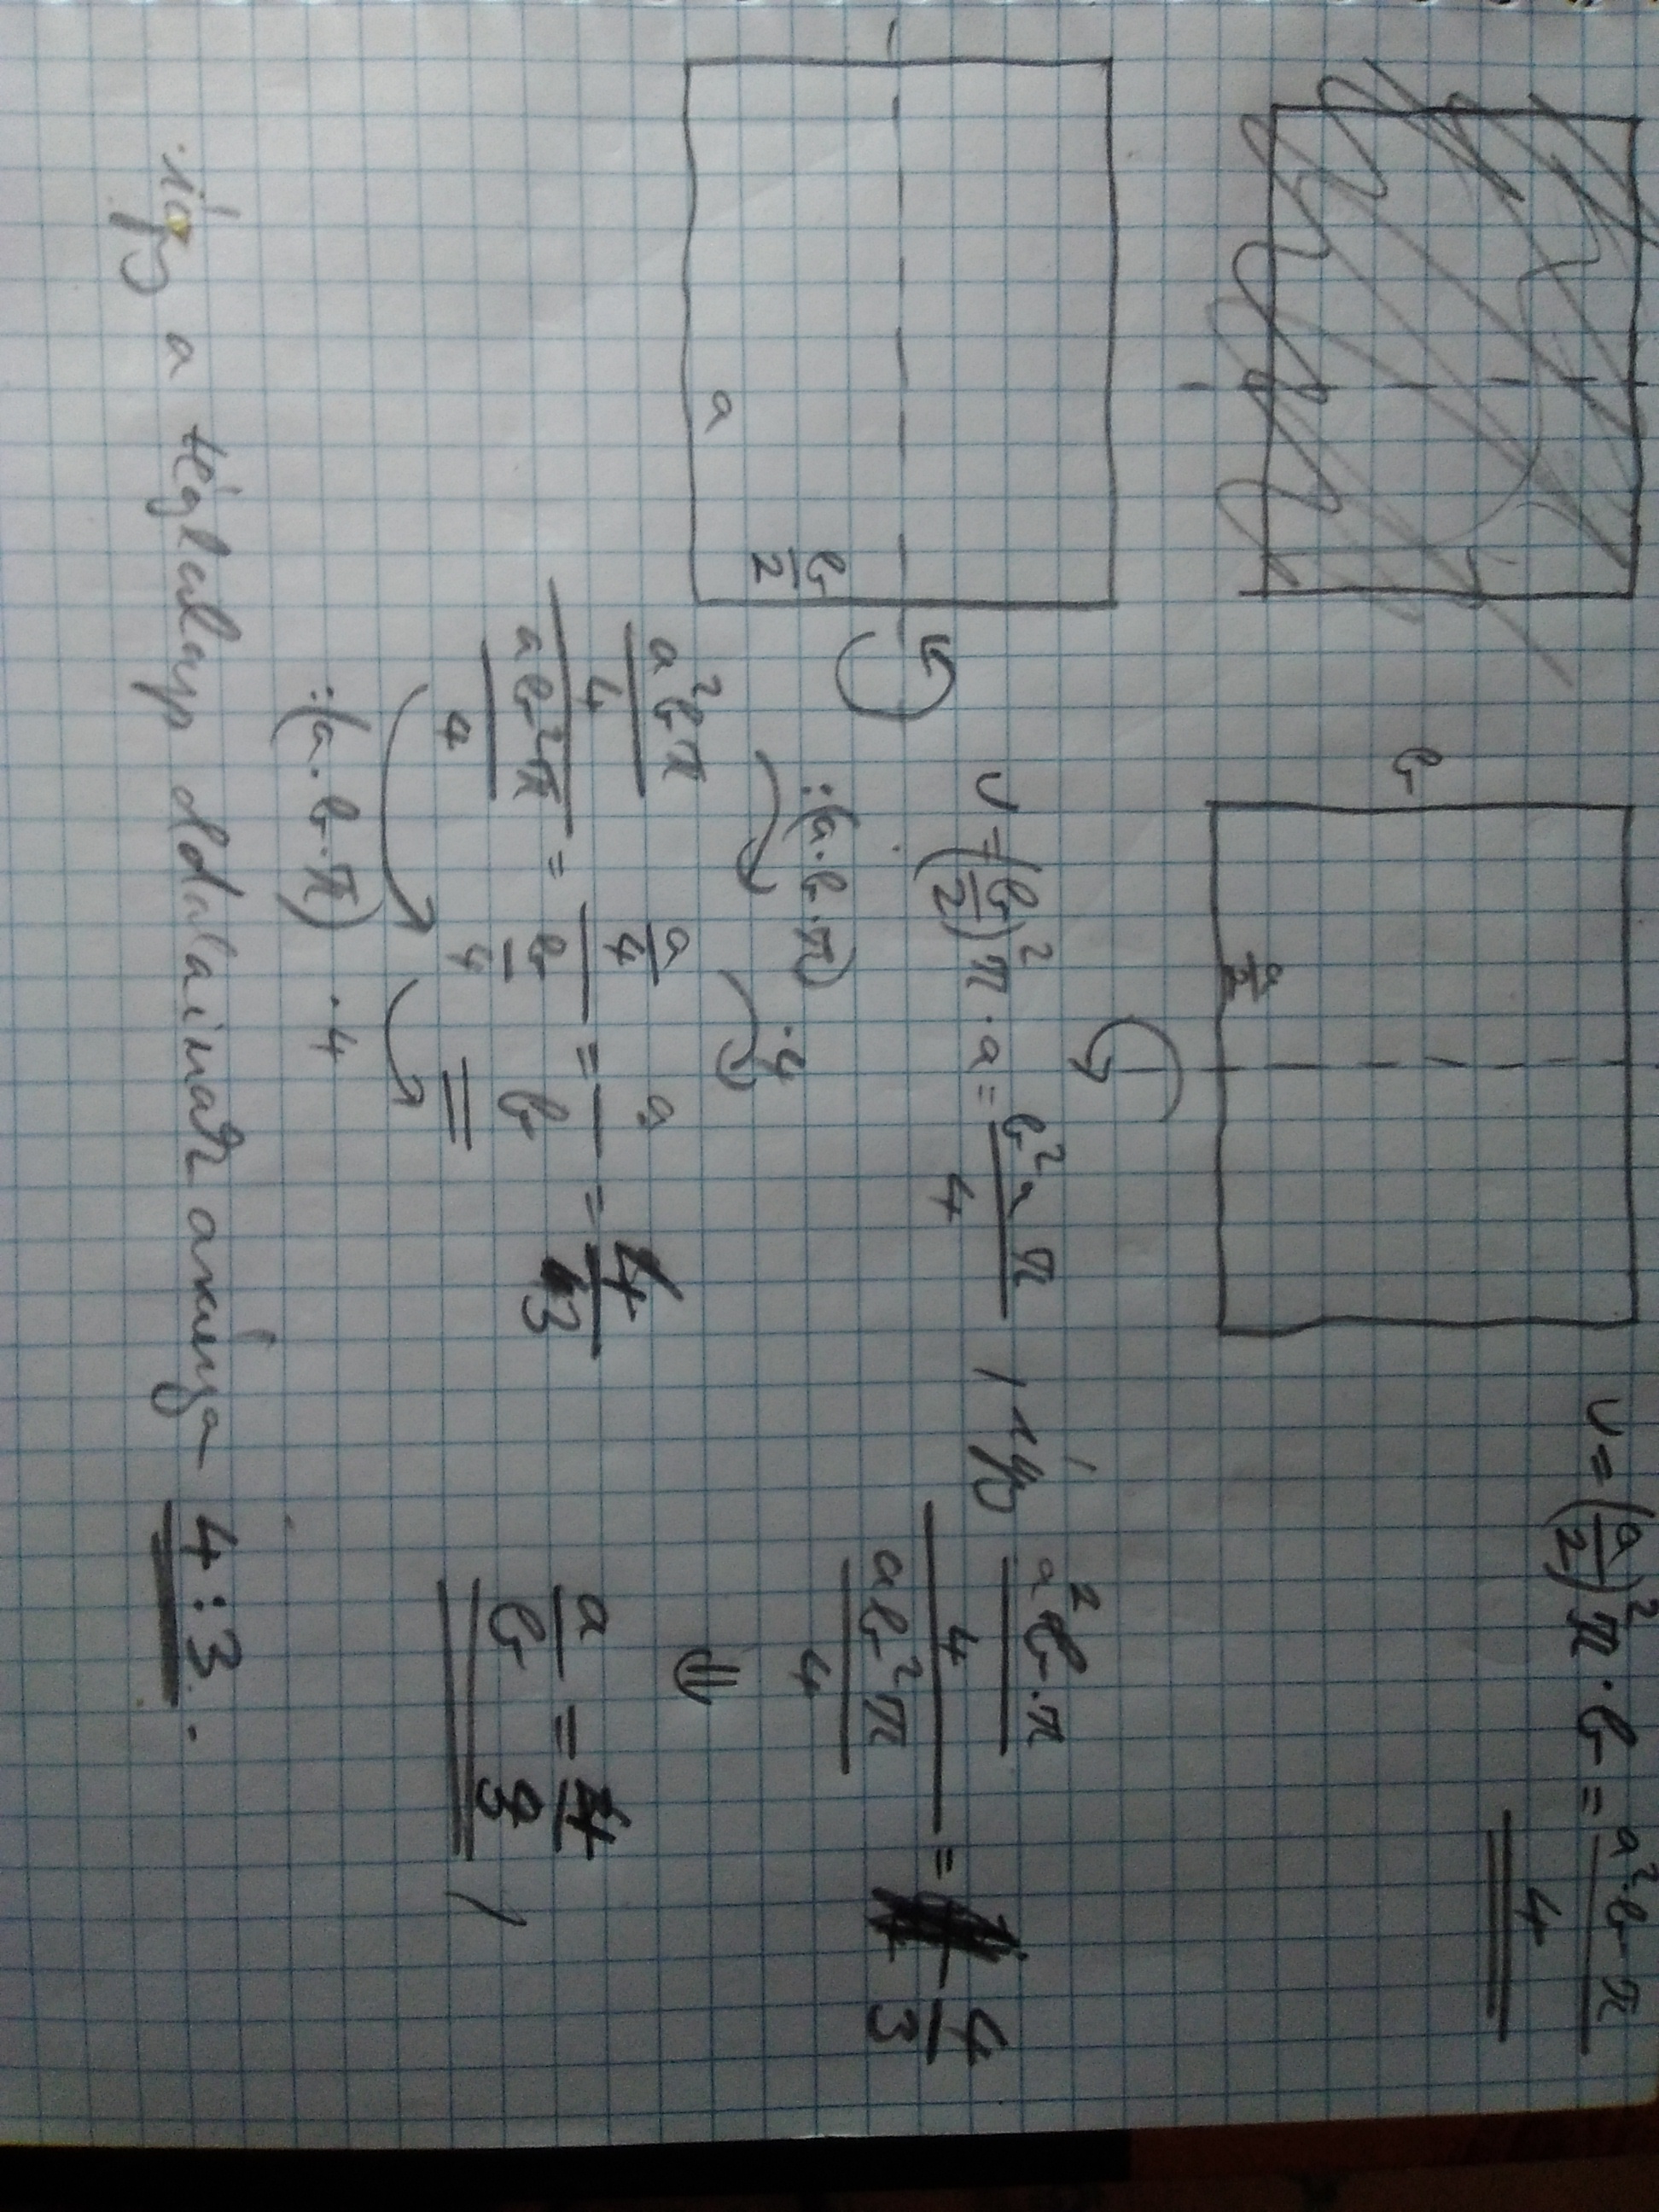 b
a/2
V = (a/2)² π · b = a² · b · π / 4
a
b/2
V = (b/2)² π · a = b² a π / 4
így
(a² b · π / 4) / (a b² π / 4) = 4/3
⇓
a/b = 4/3
: (a · b · π) · 4
(a² b π / 4) / (a b² π / 4) = (a/4) / (b/4) = a/b = 4/3
: (a · b · π) · 4
így a téglalap oldalainak aránya 4 : 3 .